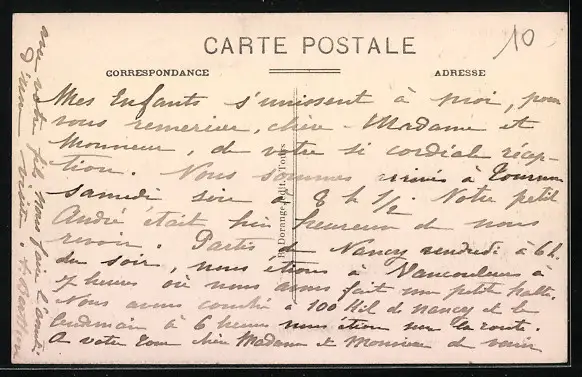 10
CARTE POSTALE
CORRESPONDANCE
ADRESSE
Mes Enfants s'unissent à moi, pour
vous remercier, chère Madame et
Monsieur, de votre si cordiale récep-
tion. Nous sommes arrivés à Tournon
samedi soir à 8 h 1/2. Notre petit
André était bien heureux de nous
revoir. Partis de Nancy vendredi à 6 h.
du soir, nous étions à Vaucouleurs à
7 heures où nous avons fait une petite halte.
Nous avons couché à 100 Kil de Nancy et le
lendemain à 6 heures nous étions sur la route.
A votre tour chère Madame et Monsieur de venir
avec votre fils nous faire l'amitié
d'une visite.
Dorange, édit., Tours